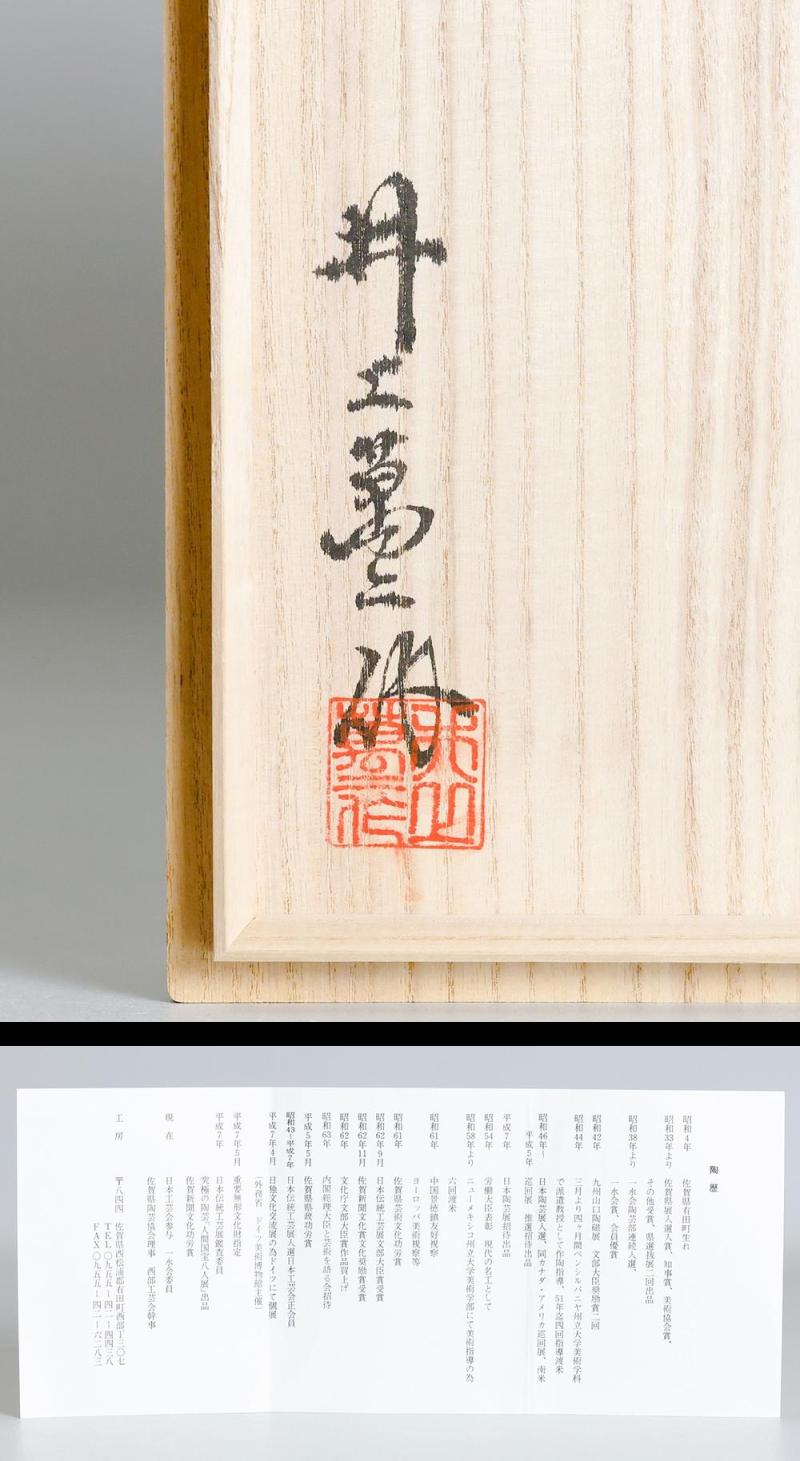 井上萬二作
陶歴
昭和4年 佐賀県有田町生れ
昭和33年より 佐賀県展入選入賞、知事賞、美術協会賞、
その他受賞、県選抜展二回出品
昭和38年より 一水会陶芸部連続入選、
一水会賞、会員優賞
昭和42年 九州山口陶磁展 文部大臣奨励賞二回
昭和44年 三月より四ヶ月間ペンシルバニヤ州立大学美術学科
で派遣教授として作陶指導、51年迄四回指導渡米
昭和46年〜 日本陶芸展入選、同カナダ・アメリカ巡回展、南米
平成5年 巡回展 推選招待出品
平成7年 日本陶芸展招待出品
昭和54年 労働大臣表彰 現代の名工として
昭和58年より ニューメキシコ州立大学美術学部にて美術指導の為
六回渡米
昭和61年 中国景徳鎮友好視察
ヨーロッパ美術視察等
昭和61年 佐賀県芸術文化功労賞
昭和62年9月 日本伝統工芸展文部大臣賞受賞
昭和62年11月 佐賀新聞文化賞文化奨励賞受賞
昭和62年 文化庁文部大臣賞作品買上げ
昭和63年 内閣総理大臣と芸術を語る会招待
平成5年5月 佐賀県県政功労賞
昭和43〜平成7年 日本伝統工芸展入選日本工芸会正会員
平成7年4月 日独文化交流展の為ドイツにて個展
(外務省 ドイツ美術博物館主催)
平成7年5月 重要無形文化財指定
平成7年 日本伝統工芸展鑑査委員
究極の陶芸「人間国宝八人展」出品
佐賀新聞文化功労賞
現在 日本工芸会参与 一水会委員
佐賀県陶芸協会理事 西部工芸会幹事
工房 〒八四四 佐賀県西松浦郡有田町西部丁三〇七
TEL〇九五五ー四二ー四四三八
FAX〇九五五ー四二ー六二八三